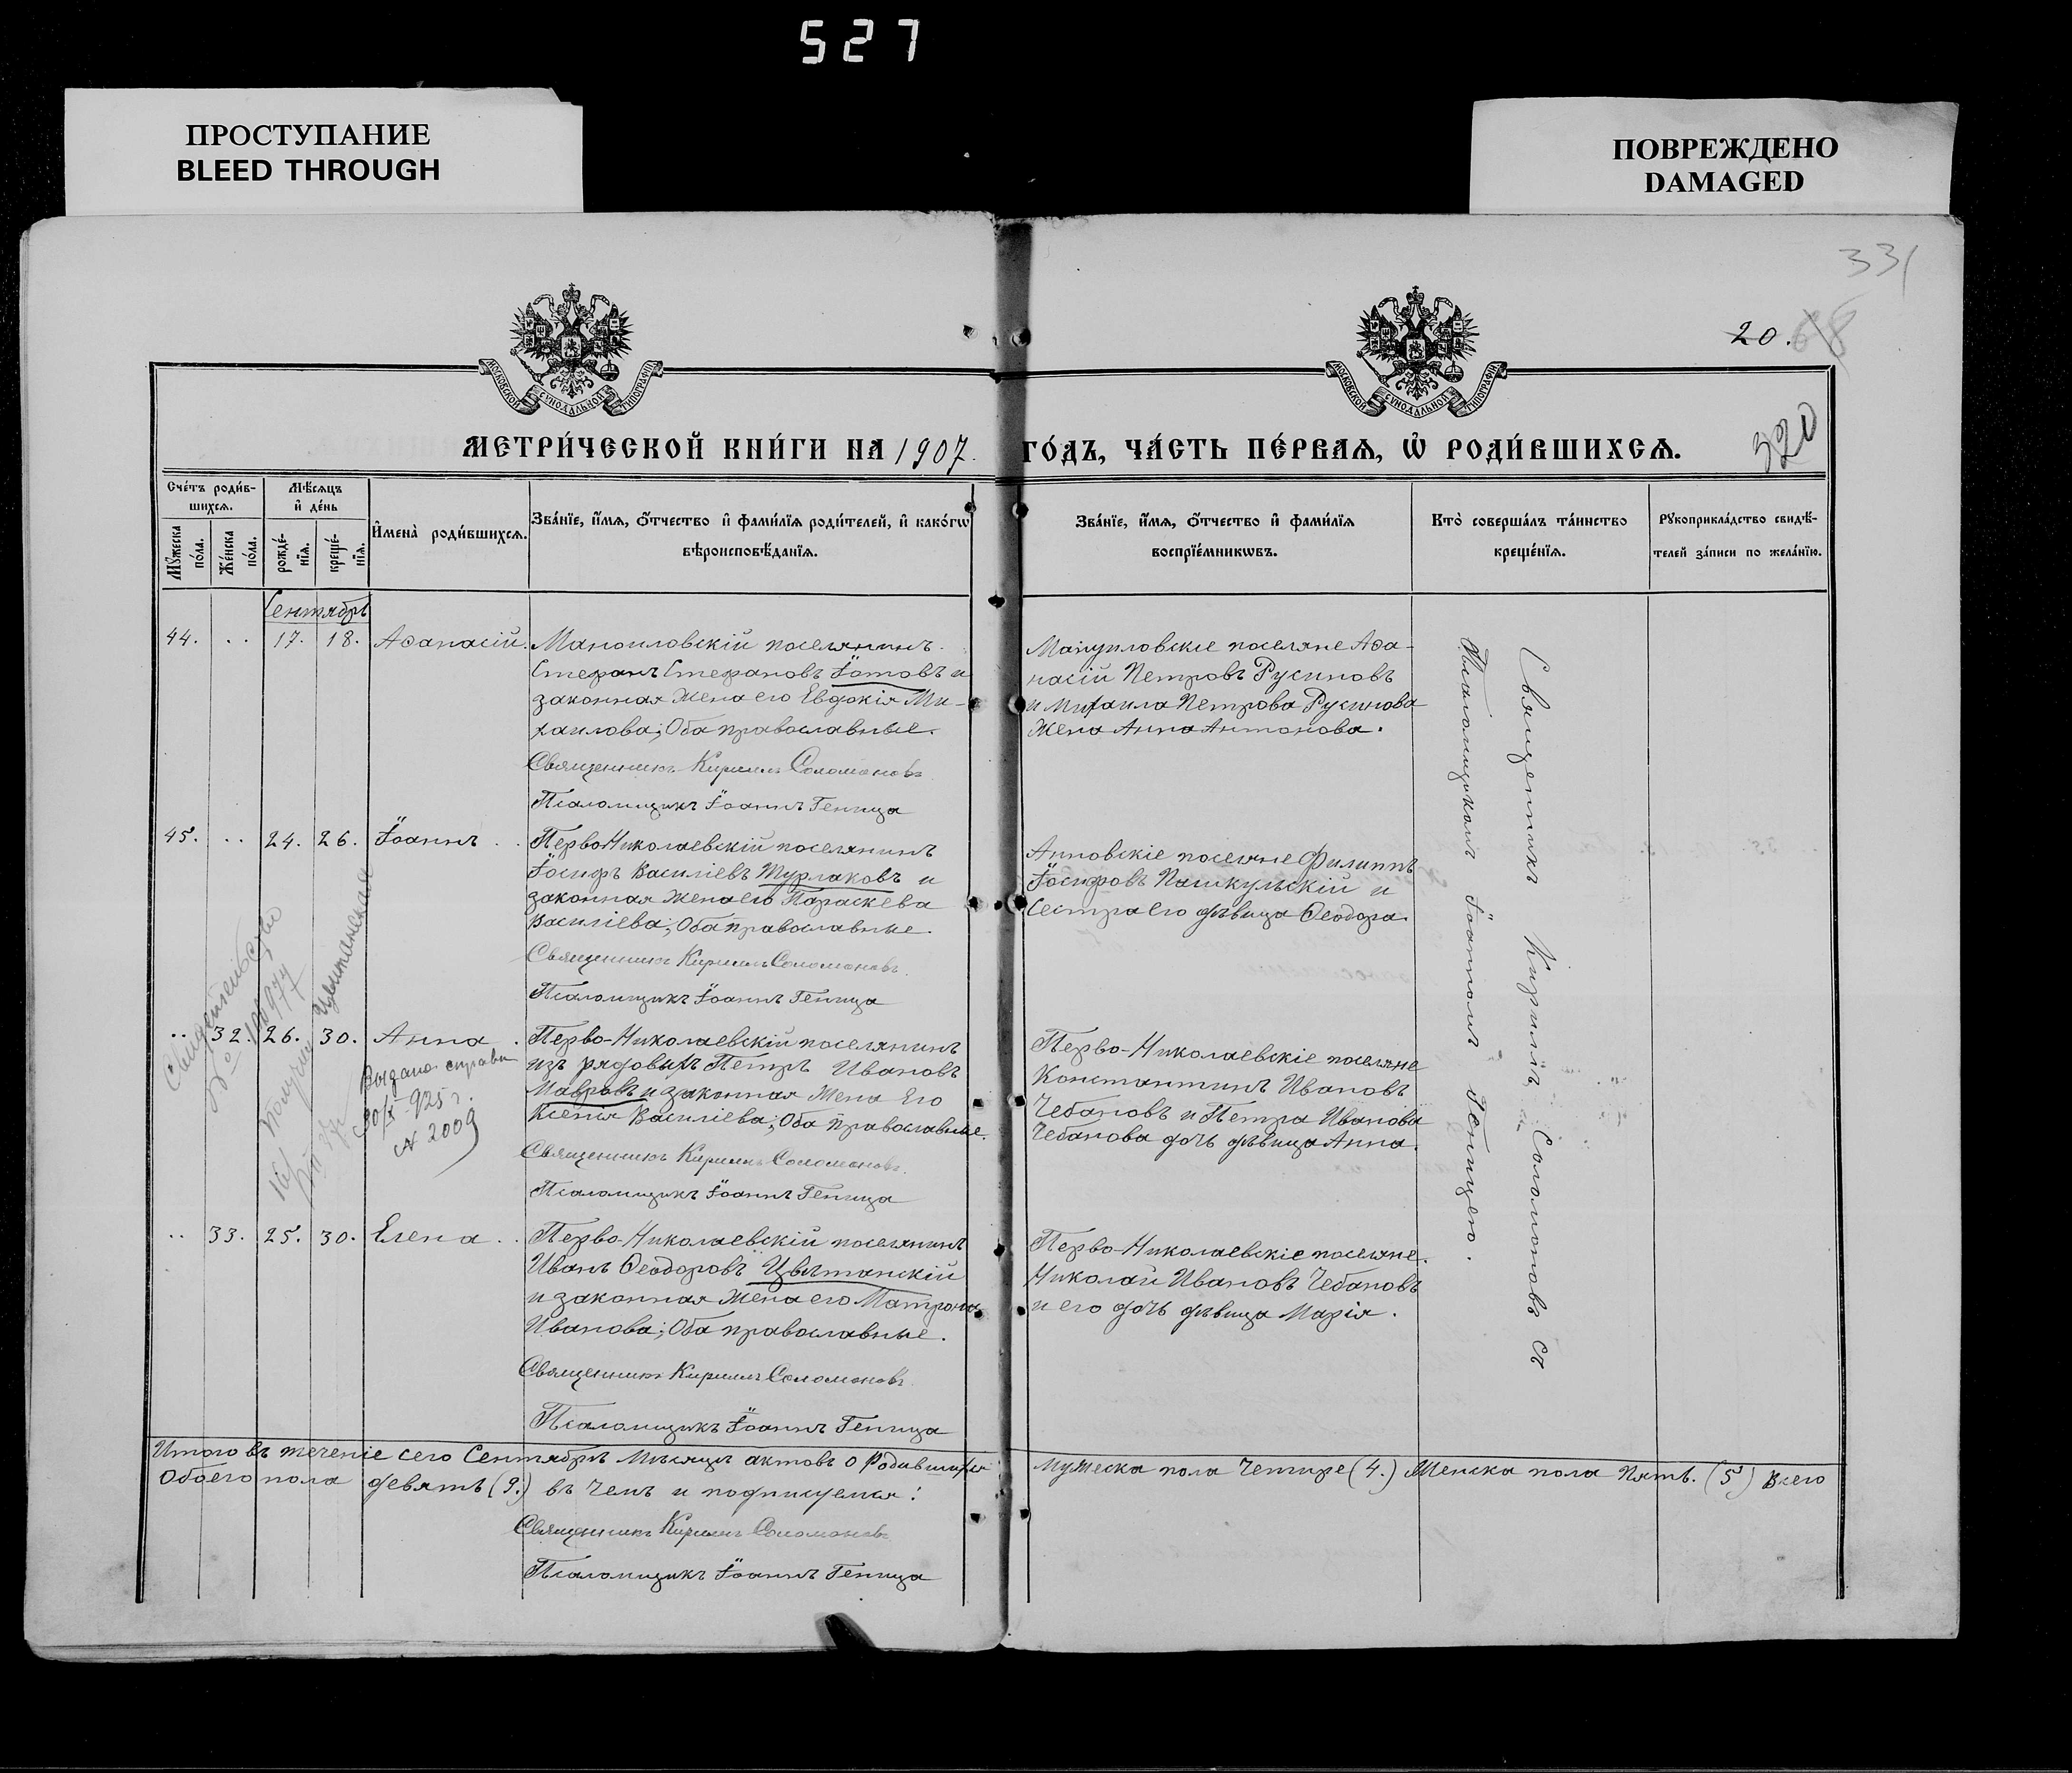 527
ПРОСТУПАНИЕ
BLEED THROUGH
ПОВРЕЖДЕНО
DAMAGED
331
20. 68
320
МОСКОВСКОЙ СѴНОДАЛЬНОЙ ТИПОГРАФІИ
МОСКОВСКОЙ СѴНОДАЛЬНОЙ ТИПОГРАФІИ
МЕТРИ́ЧЕСКОЙ КНИ́ГИ НА 1907. ГО́ДЪ, ЧА́СТЬ ПЕ́РВАѦ, Ѡ҆ РОДИ́ВШИХСѦ.
Сче́тъ роди́в-
шихсѧ.
Мꙋ́жеска по́ла.
Же́нска по́ла.
Мѣ́сѧцъ
и҆ де́нь
рожде́-
нїѧ.
креще́-
нїѧ.
И҆мена̀ роди́вшихсѧ.
Зва́нїе, и҆́мѧ, ѻ҆́тчество и҆ фами́лїѧ роди́телей, и҆ како́гѡ
вѣроисповѣ́данїѧ.
Зва́нїе, и҆́мѧ, ѻ҆́тчество и҆ фами́лїѧ
воспрїе́мникѡвъ.
Кто̀ соверша́лъ та́инство
креще́нїѧ.
Рꙋкоприкла́дство свидѣ́-
телей за́писи по жела́нїю.
Сентябрь
44. .. 17. 18. Аѳанасій.
Маноиловскій поселянинъ
Стефанъ Стефановъ Іотовъ и
законная жена его Евдокія Ми-
хаилова; Оба православные.
Священникъ Кириллъ Соломоновъ
Псаломщикъ Іоаннъ Геница
Мануиловскіе поселяне Аѳа-
насій Петровъ Русиновъ
и Михаила Петрова Русинова
жена Анна Антонова.
45. .. 24. 26. Іоаннъ
Перво-Николаевскій поселянинъ
Іосифъ Василіевъ Турлаковъ и
законная жена его Параскева
Василіева; Оба православные.
Священникъ Кириллъ Соломоновъ
Псаломщикъ Іоаннъ Геница
Анновскіе поселяне Филиппъ
Іосифовъ Пашкульскій и
сестра его дѣвица Ѳеодора.
.. 32. 26. 30. Анна
Перво-Николаевскій поселянинъ
изъ рядовыхъ Петръ Ивановъ
Мавровъ и законная жена его
Ксенія Василіева; Оба православные.
Священникъ Кириллъ Соломоновъ
Псаломщикъ Іоаннъ Геница
Перво-Николаевскіе поселяне
Константинъ Ивановъ
Чебановъ и Петра Иванова
Чебанова дочь дѣвица Анна.
Выдана справка
30/X 925 г.
№ 2009
.. 33. 25. 30. Елена
Перво-Николаевскій поселянинъ
Иванъ Ѳеодоровъ Цвѣтанскій
и законная жена его Матрона
Иванова; Оба православные.
Священникъ Кириллъ Соломоновъ
Псаломщикъ Іоаннъ Геница
Перво-Николаевскіе поселяне.
Николай Ивановъ Чебановъ
и его дочь дѣвица Марія.
Священникъ Кириллъ Соломоновъ съ
Псаломщикомъ Іоанномъ Геницею.
Итого въ теченіе сего Сентябрь мѣсяца актовъ о родившихся мужеска пола четыре (4.) Женска пола пять. (5.) всего
обоего пола девять (9.) въ чемъ и подписуемся:
Священникъ Кириллъ Соломоновъ
Псаломщикъ Іоаннъ Геница